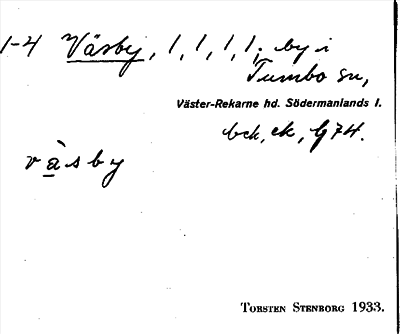 1-4 Väsby, 1, 1, 1, 1, by i
Tumbo sn,
Väster-Rekarne hd. Södermanlands l.
bek, ek, G 74.
vàsby
TORSTEN STENBORG 1933.